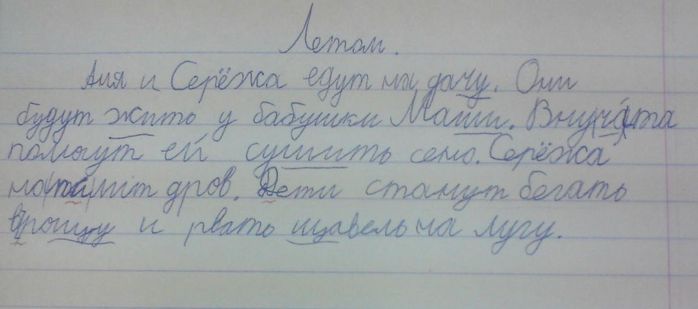 Летом.
Аня и Серёжа едут на дачу. Они
будут жить у бабушки Маши. Внучата
помогут ей сушить сено. Серёжа
напилит дров. Дети станут бегать
в рощу и рвать щавель на лугу.